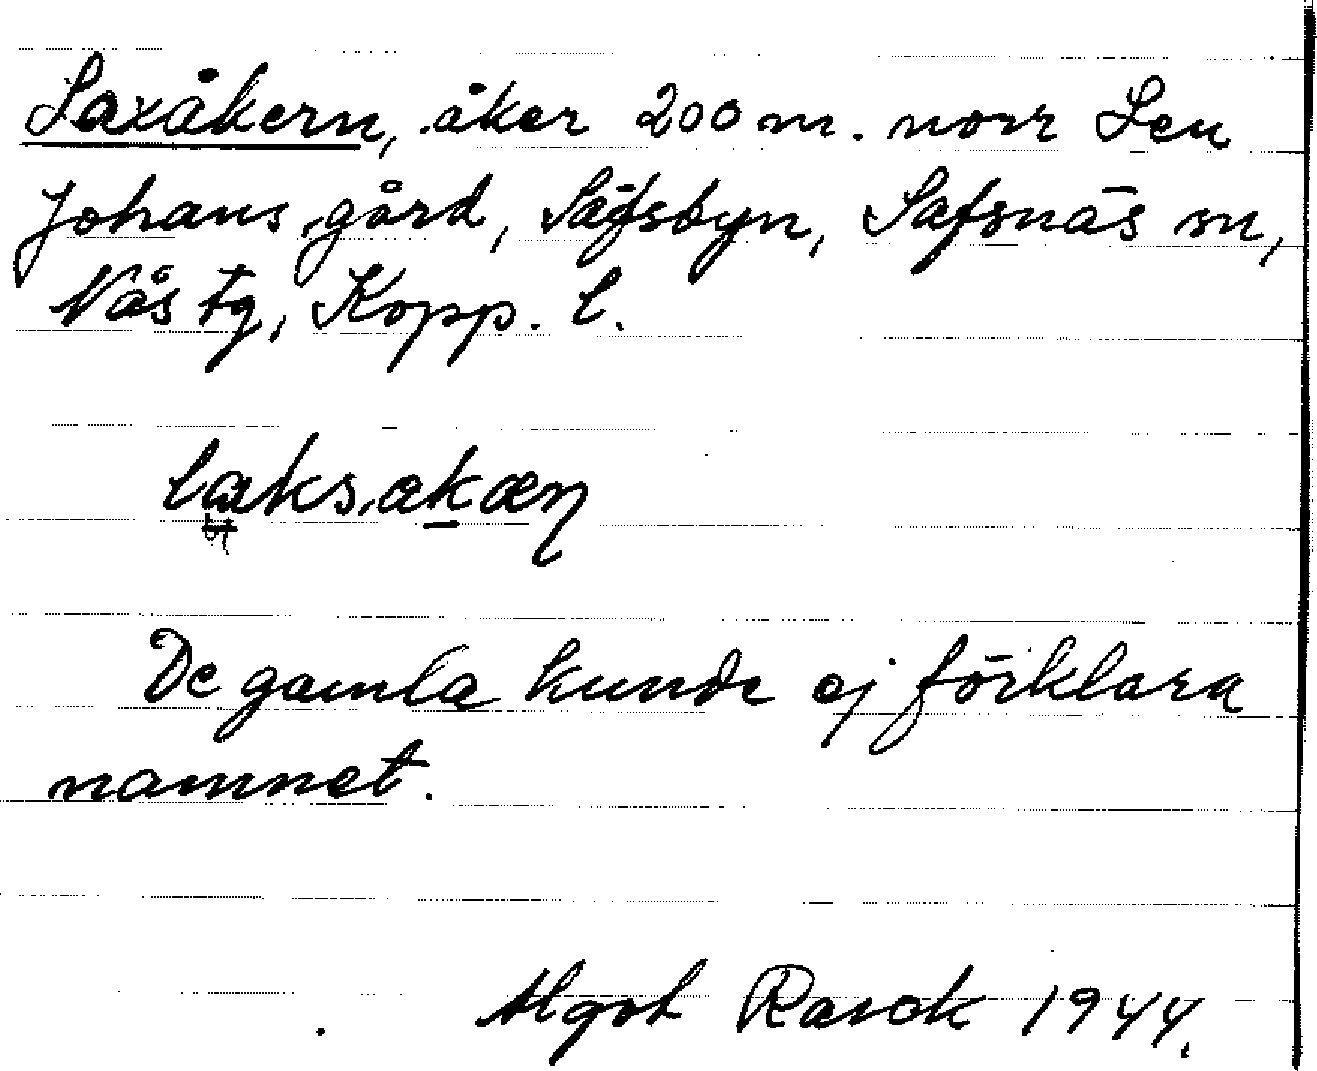 Laxåkern, åker 200 m. norr Len
Johans gård, Säfsbyn, Säfsnäs sn,
Nås tg, Kopp. l.
De gamla kunde ej förklara
namnet.
Algot Rask 1944.